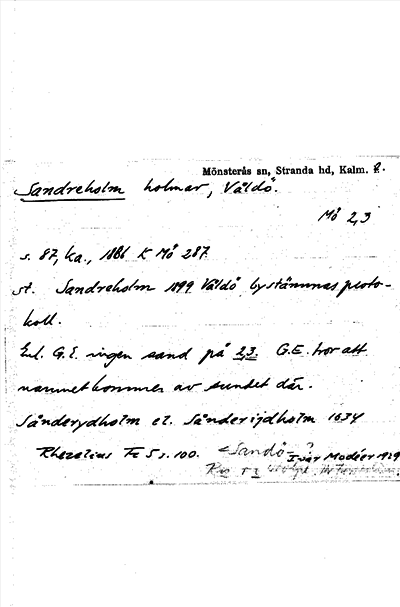 Mönsterås sn, Stranda hd, Kalm. l.
Sandreholm holmar, Väldö.
Mö 2,3
s. 87, ka., 1886 K Mö 287
st. Sandreholm 1899 Väldö bystämmas proto-
koll.
Enl. G.E. ingen sand på 2,3. G.E. tror att
namnet kommer av sundet där.
Sånderydholm el. Sånderijdholm 1634
Rhezelius Fc 5 s. 100. < Sandö- ?
Ivar Modéer 1929